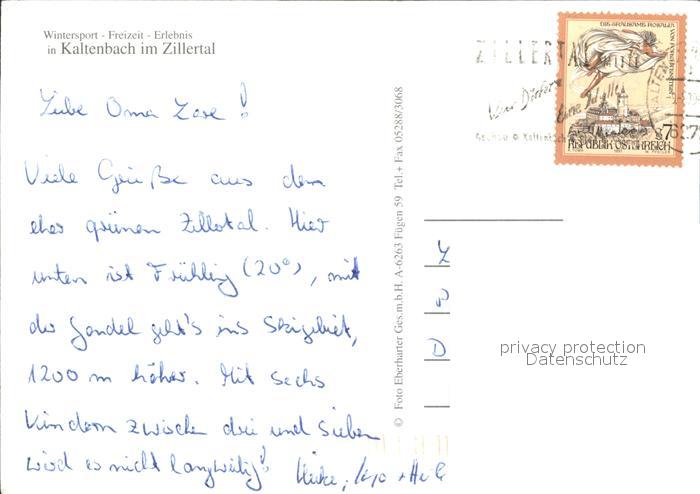 Wintersport - Freizeit - Erlebnis
in Kaltenbach im Zillertal
Liebe Oma Lore!
Viele Grüße aus dem
eher grünen Zillertal. Hier
unten ist Frühling (20°), mit
der Gondel geht's ins Skigebiet,
1200 m höher. Mit sechs
Kindern zwischen drei und sieben
wird es nicht langweilig! Heike,
© Foto Eberharter Ges.m.b.H. A-6263 Fügen 59 Tel.+ Fax 05288/3068
ZILLERTAL
DIE GRAUSAME ROSALIA
S7
REPUBLIK ÖSTERREICH
privacy protection
Datenschutz